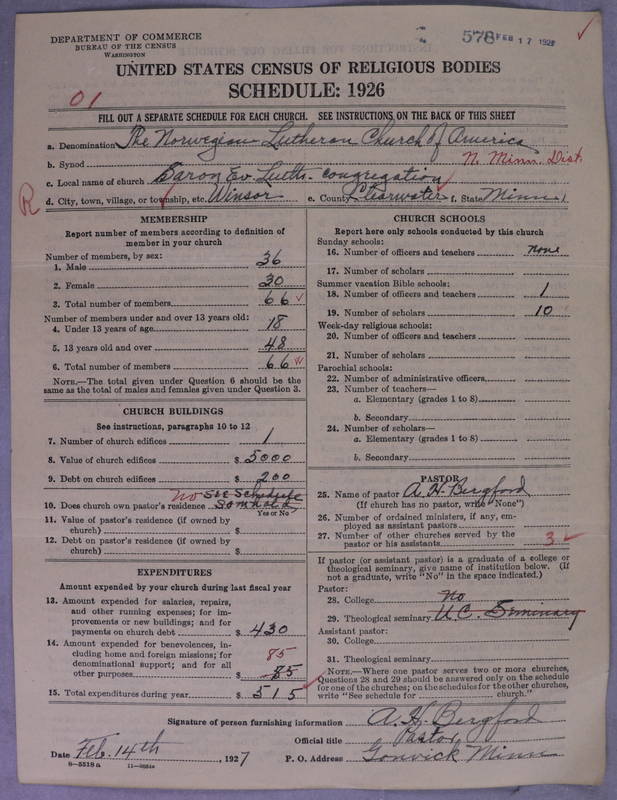 DEPARTMENT OF COMMERCE
BUREAU OF THE CENSUS
WASHINGTON
578 FEB 17 192
UNITED STATES CENSUS OF RELIGIOUS BODIES
SCHEDULE: 1926
01
FILL OUT A SEPARATE SCHEDULE FOR EACH CHURCH. SEE INSTRUCTIONS ON THE BACK OF THIS SHEET
a. Denomination The Norwegian Lutheran Church of America
b. Synod N. Minn. Dist.
c. Local name of church Saron Ev. Luth. congregation
R d. City, town, village, or township, etc. Winsor e. County Clearwater f. State Minn
MEMBERSHIP
Report number of members according to definition of
member in your church
Number of members, by sex:
1. Male 36
2. Female 30
3. Total number of members 66
Number of members under and over 13 years old:
4. Under 13 years of age 18
5. 13 years old and over 48
6. Total number of members 66
NOTE.—The total given under Question 6 should be the
same as the total of males and females given under Question 3.
CHURCH BUILDINGS
See instructions, paragraphs 10 to 12
7. Number of church edifices 1
8. Value of church edifices $ 5000
9. Debt on church edifices $ 200
no See Schedule
10. Does church own pastor's residence
Yes or No
11. Value of pastor's residence (if owned by
church) $
12. Debt on pastor's residence (if owned by
church) $
EXPENDITURES
Amount expended by your church during last fiscal year
13. Amount expended for salaries, repairs,
and other running expenses; for im-
provements or new buildings; and for
payments on church debt $ 430
14. Amount expended for benevolences, in-
cluding home and foreign missions; for 85
denominational support; and for all
other purposes $ 85
15. Total expenditures during year $ 515
CHURCH SCHOOLS
Report here only schools conducted by this church
Sunday schools:
16. Number of officers and teachers none
17. Number of scholars
Summer vacation Bible schools:
18. Number of officers and teachers 1
19. Number of scholars 10
Week-day religious schools:
20. Number of officers and teachers
21. Number of scholars
Parochial schools:
22. Number of administrative officers
23. Number of teachers—
a. Elementary (grades 1 to 8)
b. Secondary
24. Number of scholars—
a. Elementary (grades 1 to 8)
b. Secondary
PASTOR
25. Name of pastor A. H. Bergford
(If church has no pastor, write "None")
26. Number of ordained ministers, if any, em-
ployed as assistant pastors
27. Number of other churches served by the
pastor or his assistants 3
If pastor (or assistant pastor) is a graduate of a college or
theological seminary, give name of institution below. (If
not a graduate, write "No" in the space indicated.)
Pastor:
28. College no
29. Theological seminary U.C. Seminary
Assistant pastor:
30. College
31. Theological seminary
NOTE.—Where one pastor serves two or more churches,
Questions 28 and 29 should be answered only on the schedule
for one of the churches; on the schedules for the other churches,
write "See schedule for church."
Signature of person furnishing information A. H. Bergford
Official title Pastor,
Date Feb. 14th, 1927 P. O. Address Gonvick Minn
8—5518a